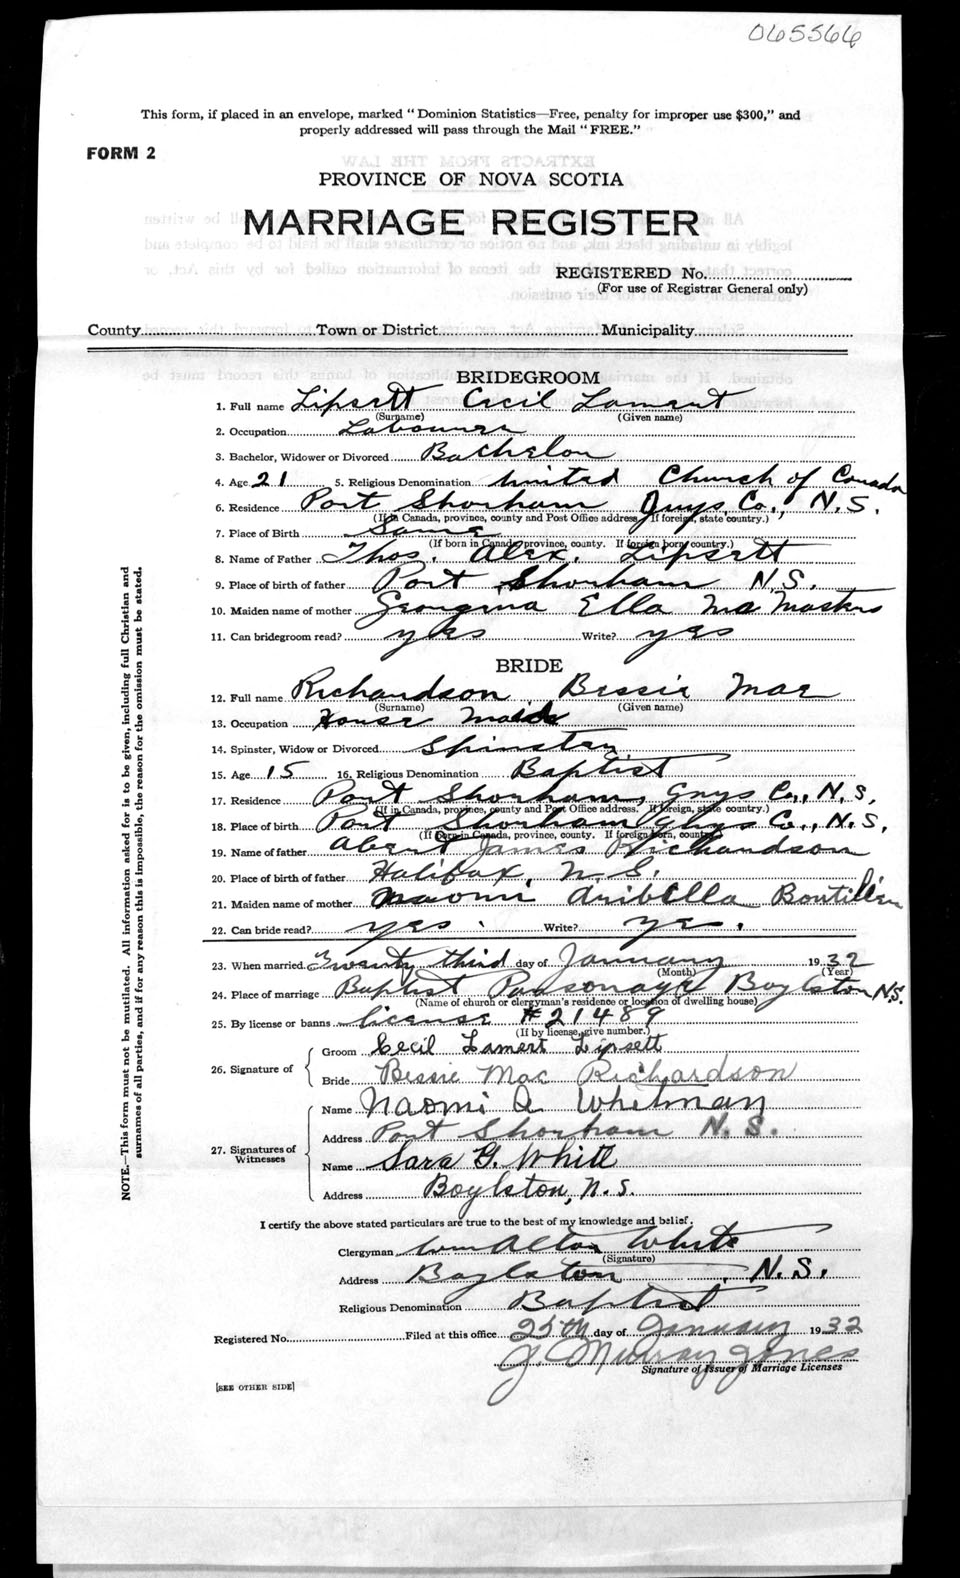 065566
This form, if placed in an envelope, marked "Dominion Statistics—Free, penalty for improper use $300," and
properly addressed will pass through the Mail "FREE."
FORM 2
PROVINCE OF NOVA SCOTIA
MARRIAGE REGISTER
REGISTERED No.
(For use of Registrar General only)
County Town or District Municipality
BRIDEGROOM
1. Full name Lipsett Cecil Lamert
(Surname) (Given name)
2. Occupation Labourer
3. Bachelor, Widower or Divorced Bachelor
4. Age 21 5. Religious Denomination United Church of Canada
6. Residence Port Shorham Guys. Co., N.S.
(If in Canada, province, county and Post Office address. If foreign, state country.)
7. Place of Birth Same
(If born in Canada, province, county. If foreign born, country.)
8. Name of Father Thos. Alex. Lipsett
9. Place of birth of father Port Shorham N.S.
10. Maiden name of mother Georgina Ella Ma Masters
11. Can bridegroom read? yes Write? yes
BRIDE
12. Full name Richardson Bessie Mae
(Surname) (Given name)
13. Occupation House Maid
14. Spinster, Widow or Divorced Spinster
15. Age 15 16. Religious Denomination Baptist
17. Residence Port Shorham, Guys Co., N.S.
(If in Canada, province, county and Post Office address. If foreign, state country.)
18. Place of birth Port Shorham Guys Co., N.S.
(If born in Canada, province, county. If foreign born, country)
19. Name of father Abert James Richardson
20. Place of birth of father Halifax, N.S.
21. Maiden name of mother Naomi Aribella Boutilier
22. Can bride read? yes. Write? yes.
23. When married Twenty third day of January 1932
(Month) (Year)
24. Place of marriage Baptist Parsonage Boylston N.S.
(Name of church or clergyman's residence or location of dwelling house)
25. By license or banns license #21489
(If by license, give number.)
26. Signature of Groom Cecil Lamert Lipsett
Bride Bessie Mae Richardson
27. Signatures of Witnesses Name Naomi A Whitman
Address Port Shorham N.S.
Name Sara G. White
Address Boylston, N.S.
I certify the above stated particulars are true to the best of my knowledge and belief.
Clergyman Wm Alton White
(Signature)
Address Boylston, N.S.
Religious Denomination Baptist
Registered No. Filed at this office 25th day of January 1932
J. Murray Jones
Signature of Issuer of Marriage Licenses
[SEE OTHER SIDE]
NOTE.—This form must not be mutilated. All information asked for is to be given, including full Christian and
surnames of all parties, and if for any reason this is impossible, the reason for the omission must be stated.